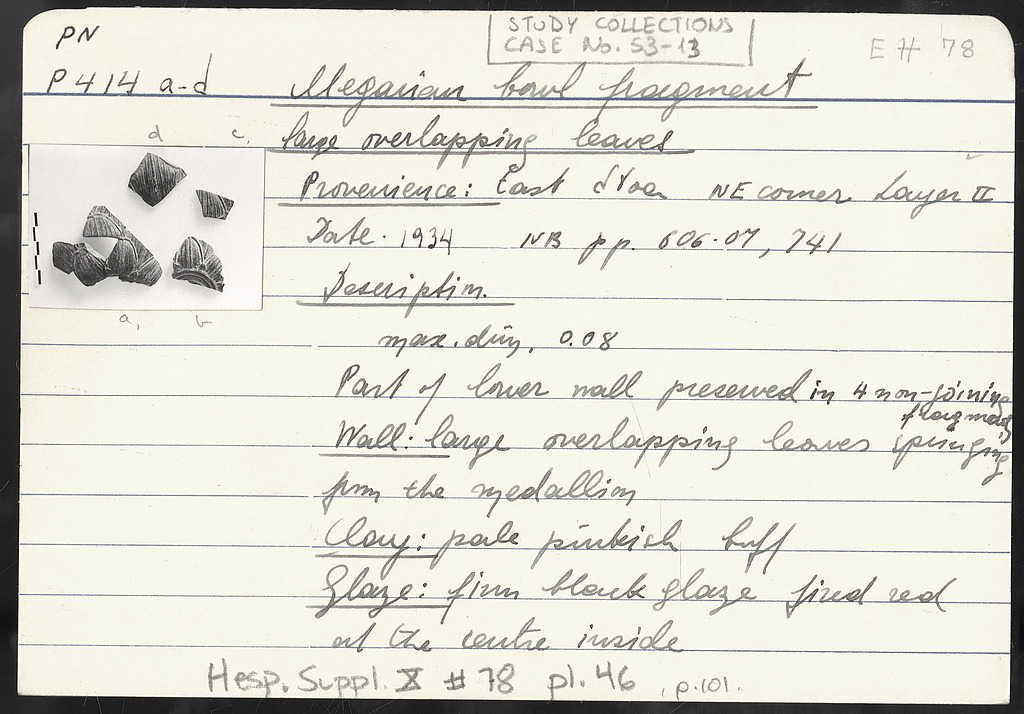 PN
STUDY COLLECTIONS
CASE No. S3-13
E # 78
P 414 a-d
Megarian bowl fragment
d c.
large overlapping leaves
Provenience: East Stoa NE corner Layer II
Date. 1934 NB pp. 606-07, 741
Description.
a, b
max. dim. 0.08
Part of lower wall preserved in 4 non-joining fragments
Wall: large overlapping leaves springing
from the medallion
Clay: pale pinkish buff
Glaze: firm black glaze fired red
at the centre inside
Hesp. Suppl. X # 78 pl. 46, p. 101.